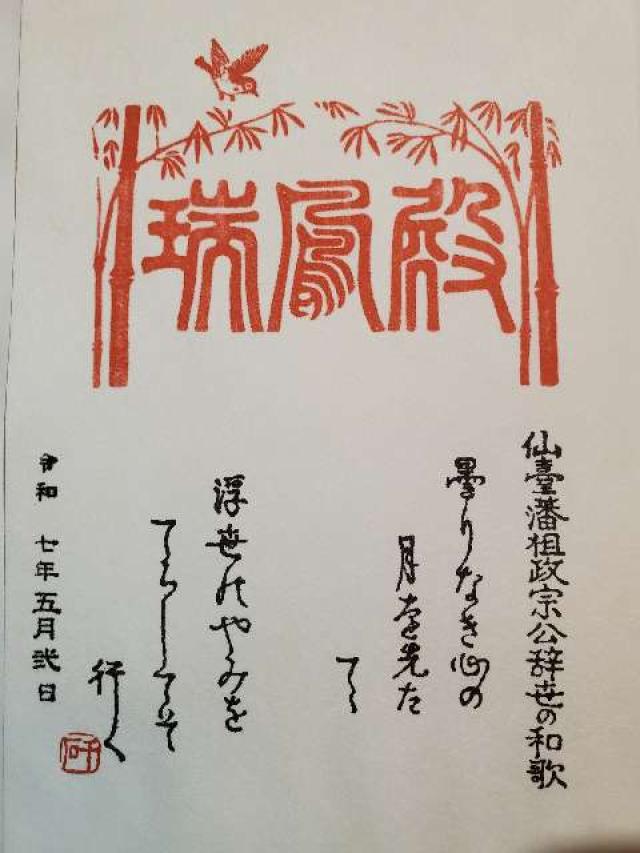 瑞鳳殿
仙臺藩祖政宗公辞世の和歌
曇りなき心の
月を先た
てゝ
浮世のやみを
てらしてそ
行く
令和 七年五月弐日